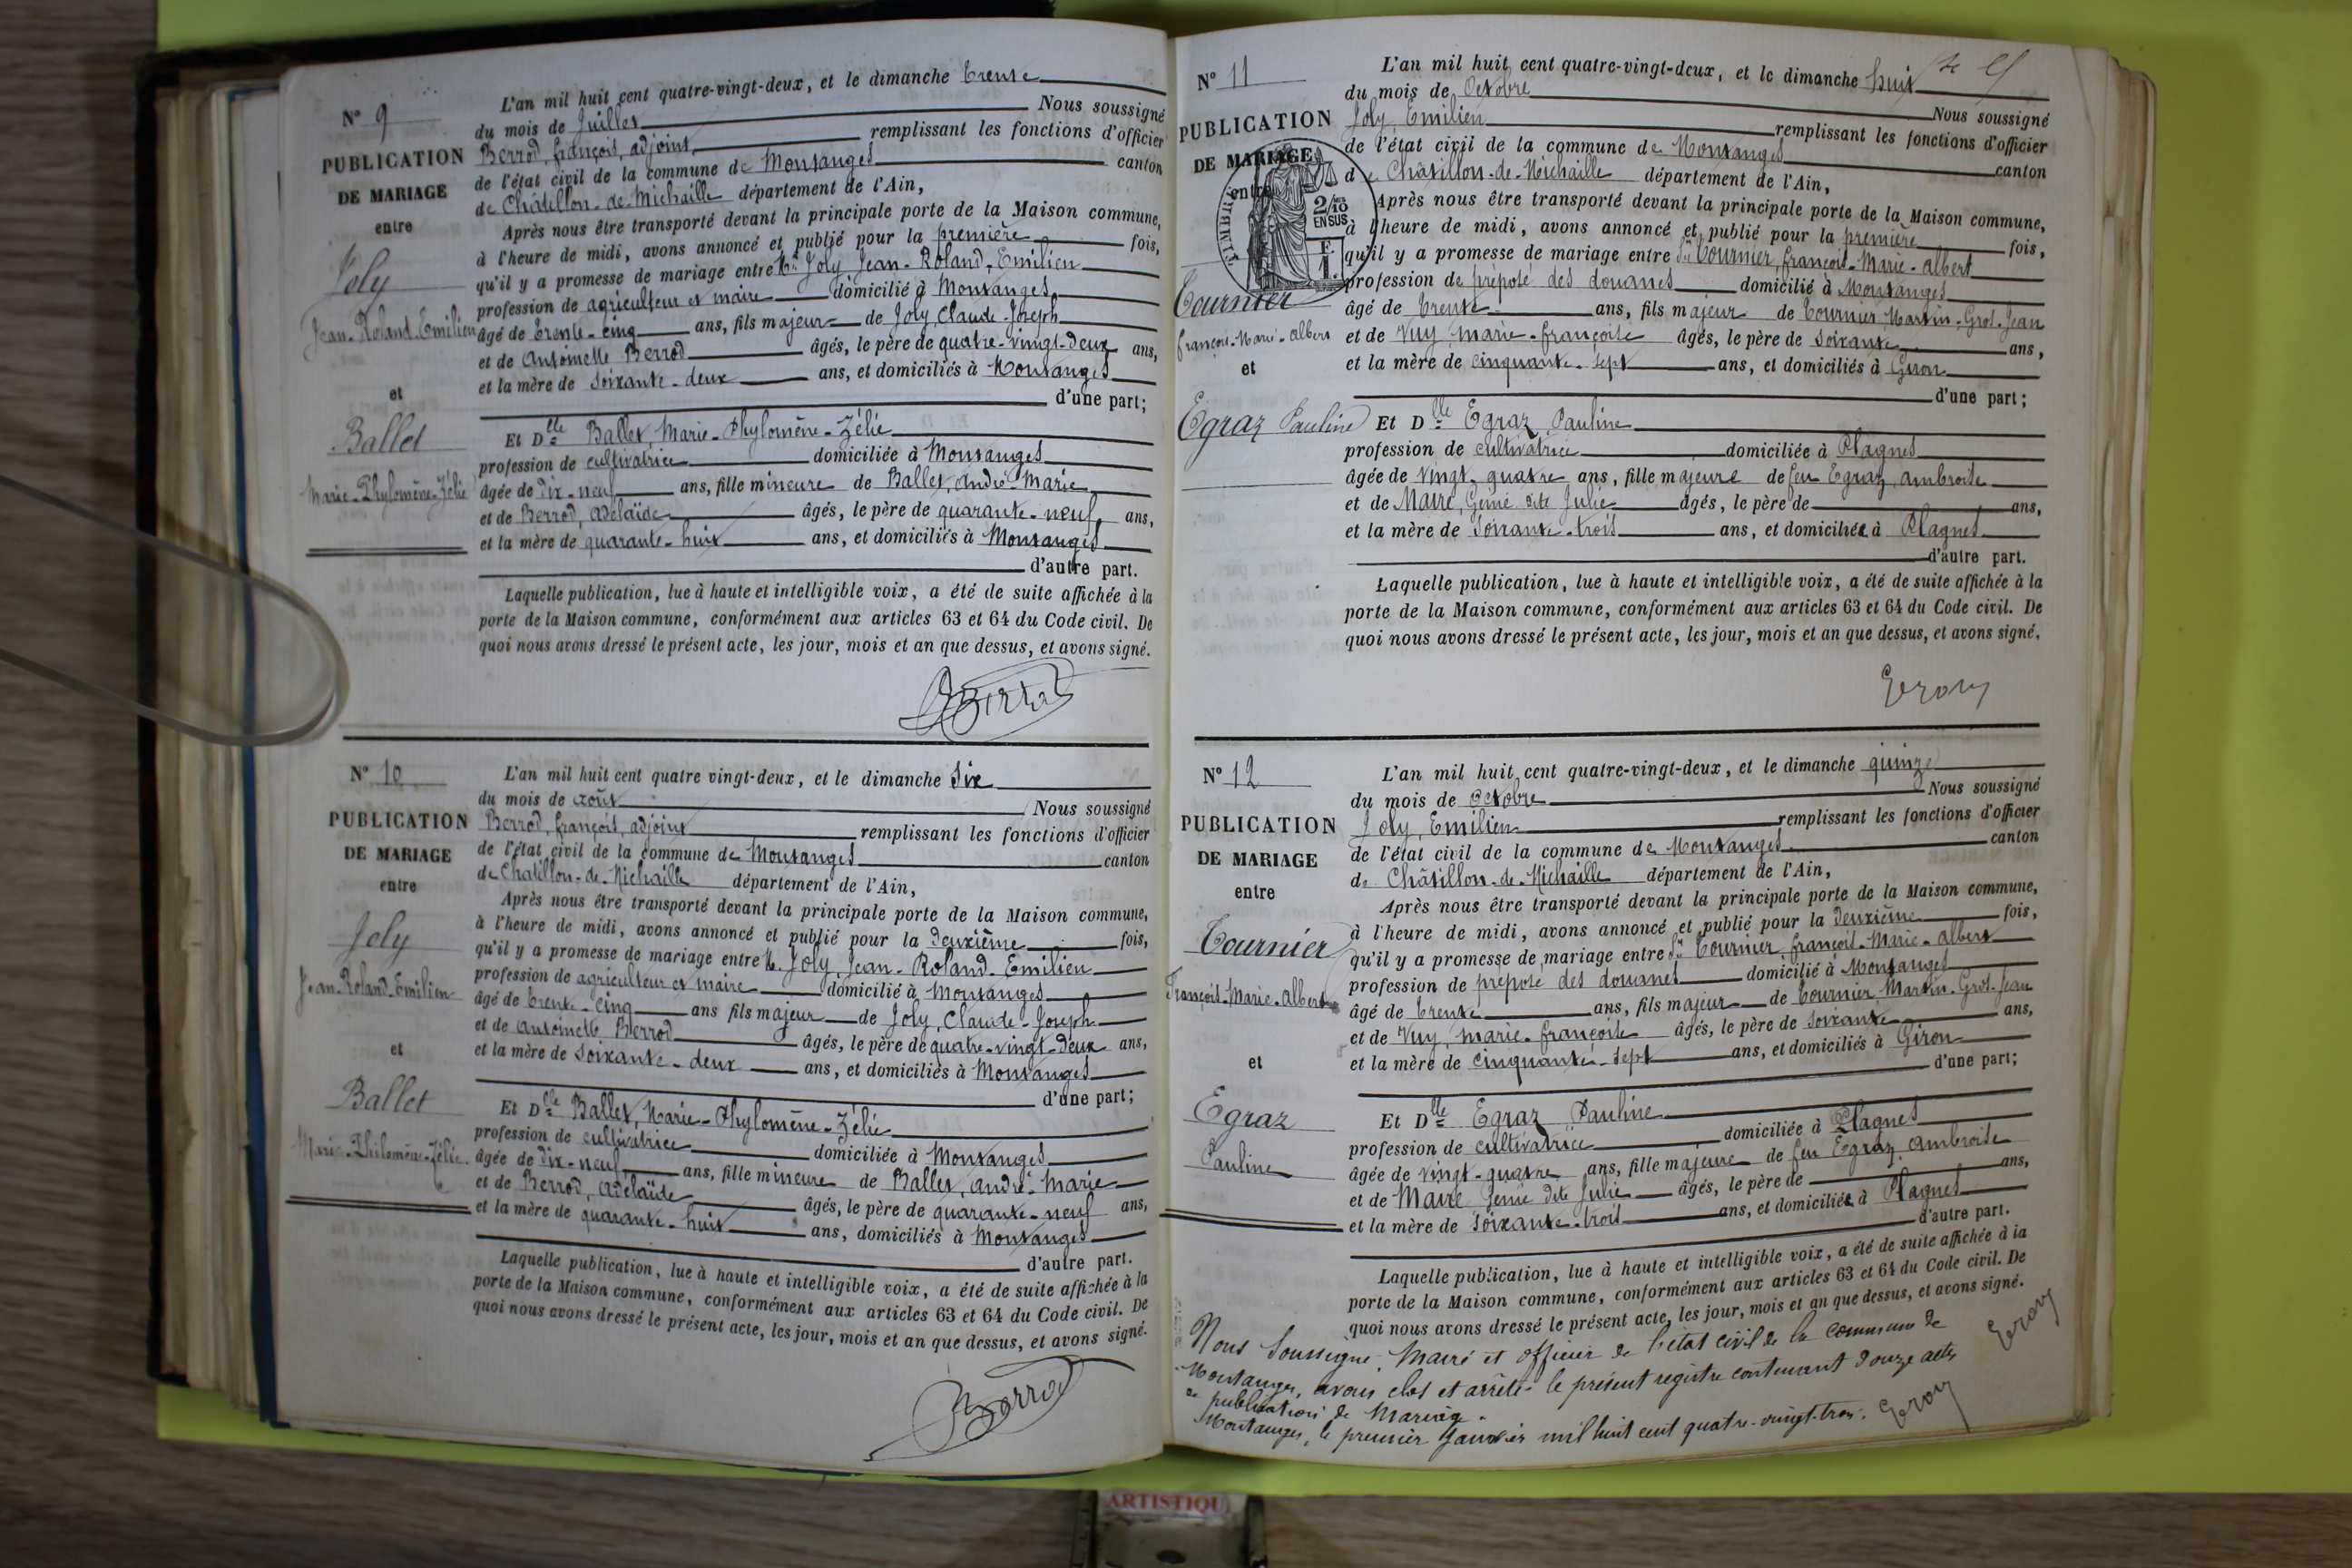 N° 9
PUBLICATION
DE MARIAGE
entre
Joly
Jean-Roland-Emilien
et
Ballet
Marie-Phylomène-Zélie
L'an mil huit cent quatre-vingt-deux, et le dimanche trente
du mois de Juillet Nous soussigné
Berrod, françois, adjoint, remplissant les fonctions d'officier
de l'état civil de la commune de Montanges canton
de Châtillon-de-Michaille département de l'Ain,
Après nous être transporté devant la principale porte de la Maison commune,
à l'heure de midi, avons annoncé et publié pour la première fois,
qu'il y a promesse de mariage entre Mr Joly Jean-Roland-Emilien
profession de agriculteur et maire domicilié à Montanges
âgé de trente-cinq ans, fils majeur de Joly, Claude-Joseph
et de Antoinette Berrod âgés, le père de quatre-vingt-deux ans,
et la mère de soixante-deux ans, et domiciliés à Montanges
d'une part;
Et Dlle Ballet, Marie-Phylomène-Zélie
profession de cultivatrice domiciliée à Montanges
âgée de dix-neuf ans, fille mineure de Ballet, andré-Marie
et de Berrod, adélaïde âgés, le père de quarante-neuf ans,
et la mère de quarante-huit ans, et domiciliés à Montanges
d'autre part.
Laquelle publication, lue à haute et intelligible voix, a été de suite affichée à la
porte de la Maison commune, conformément aux articles 63 et 64 du Code civil. De
quoi nous avons dressé le présent acte, les jour, mois et an que dessus, et avons signé.
Berrod
N° 10
PUBLICATION
DE MARIAGE
entre
Joly
Jean-Roland-Emilien
et
Ballet
Marie-Philomène-Zélie
L'an mil huit cent quatre vingt-deux, et le dimanche six
du mois de août Nous soussigné
Berrod, françois, adjoint remplissant les fonctions d'officier
de l'état civil de la commune de Montanges canton
de Chatillon-de-Michaille département de l'Ain,
Après nous être transporté devant la principale porte de la Maison commune,
à l'heure de midi, avons annoncé et publié pour la deuxième fois,
qu'il y a promesse de mariage entre M. Joly, Jean-Roland-Emilien
profession de agriculteur et maire domicilié à Montanges
âgé de trente-cinq ans fils majeur de Joly, Claude-Joseph
et de antoinette Berrod âgés, le père de quatre-vingt-deux ans,
et la mère de soixante-deux ans, et domiciliés à Montanges
d'une part;
Et Dlle Ballet, Marie-Phylomène-Zélie
profession de cultivatrice domiciliée à Montanges
âgée de dix-neuf ans, fille mineure de Ballet, andré-Marie
et de Berrod, adélaïde âgés, le père de quarante-neuf ans,
et la mère de quarante-huit ans, domiciliés à Montanges
d'autre part.
Laquelle publication, lue à haute et intelligible voix, a été de suite affichée à la
porte de la Maison commune, conformément aux articles 63 et 64 du Code civil. De
quoi nous avons dressé le présent acte, les jour, mois et an que dessus, et avons signé.
Berrod
N° 11
PUBLICATION
DE MARIAGE
entre
TIMBRE
2/10
EN SUS
Tournier
françois-Marie-Albert
et
Egraz Pauline
L'an mil huit cent quatre-vingt-deux, et le dimanche huit
du mois de Octobre Nous soussigné
Joly, Emilien remplissant les fonctions d'officier
de l'état civil de la commune de Montanges canton
de Châtillon-de-Michaille département de l'Ain,
Après nous être transporté devant la principale porte de la Maison commune,
à l'heure de midi, avons annoncé et publié pour la première fois,
qu'il y a promesse de mariage entre Sr Tournier, françois-Marie-albert
profession de préposé des douanes domicilié à Montanges
âgé de trente ans, fils majeur de Tournier Martin-Gros-Jean
et de Vuy marie-françoise âgés, le père de soixante ans,
et la mère de cinquante-sept ans, et domiciliés à Giron
d'une part;
Et Dlle Egraz Pauline
profession de cultivatrice domiciliée à Plagnes
âgée de vingt-quatre ans, fille majeure de feu Egraz, ambroise
et de Maire, Génie dite Julie âgés, le père de ans,
et la mère de soixante-trois ans, et domiciliée à Plagnes
d'autre part.
Laquelle publication, lue à haute et intelligible voix, a été de suite affichée à la
porte de la Maison commune, conformément aux articles 63 et 64 du Code civil. De
quoi nous avons dressé le présent acte, les jour, mois et an que dessus, et avons signé.
N° 12
PUBLICATION
DE MARIAGE
entre
Tournier
François-Marie-albert
et
Egraz
Pauline
L'an mil huit cent quatre-vingt-deux, et le dimanche quinze
du mois de octobre Nous soussigné
Joly, Emilien remplissant les fonctions d'officier
de l'état civil de la commune de Montanges canton
de Châtillon-de-Michaille département de l'Ain,
Après nous être transporté devant la principale porte de la Maison commune,
à l'heure de midi, avons annoncé et publié pour la deuxième fois,
qu'il y a promesse de mariage entre Sr Tournier françois-Marie-albert
profession de préposé des douanes domicilié à Montanges
âgé de trente ans, fils majeur de Tournier Martin-Gros-Jean
et de Vuy, marie-françoise âgés, le père de soixante ans,
et la mère de cinquante-sept ans, et domiciliés à Giron
d'une part;
Et Dlle Egraz Pauline
profession de cultivatrice domiciliée à Plagnes
âgée de vingt-quatre ans, fille majeure de feu Egraz, ambroise
et de Maire Génie dite Julie âgés, le père de ans,
et la mère de soixante-trois ans, et domiciliée à Plagnes
d'autre part.
Laquelle publication, lue à haute et intelligible voix, a été de suite affichée à la
porte de la Maison commune, conformément aux articles 63 et 64 du Code civil. De
quoi nous avons dressé le présent acte, les jour, mois et an que dessus, et avons signé.
Nous soussigné, Maire et officier de l'état civil de la commune de
Montanges, avons clos et arrêté le présent registre contenant douze actes
de publication de Mariage.
Montanges, le premier Janvier mil huit cent quatre-vingt-trois.
ARTISTIQU